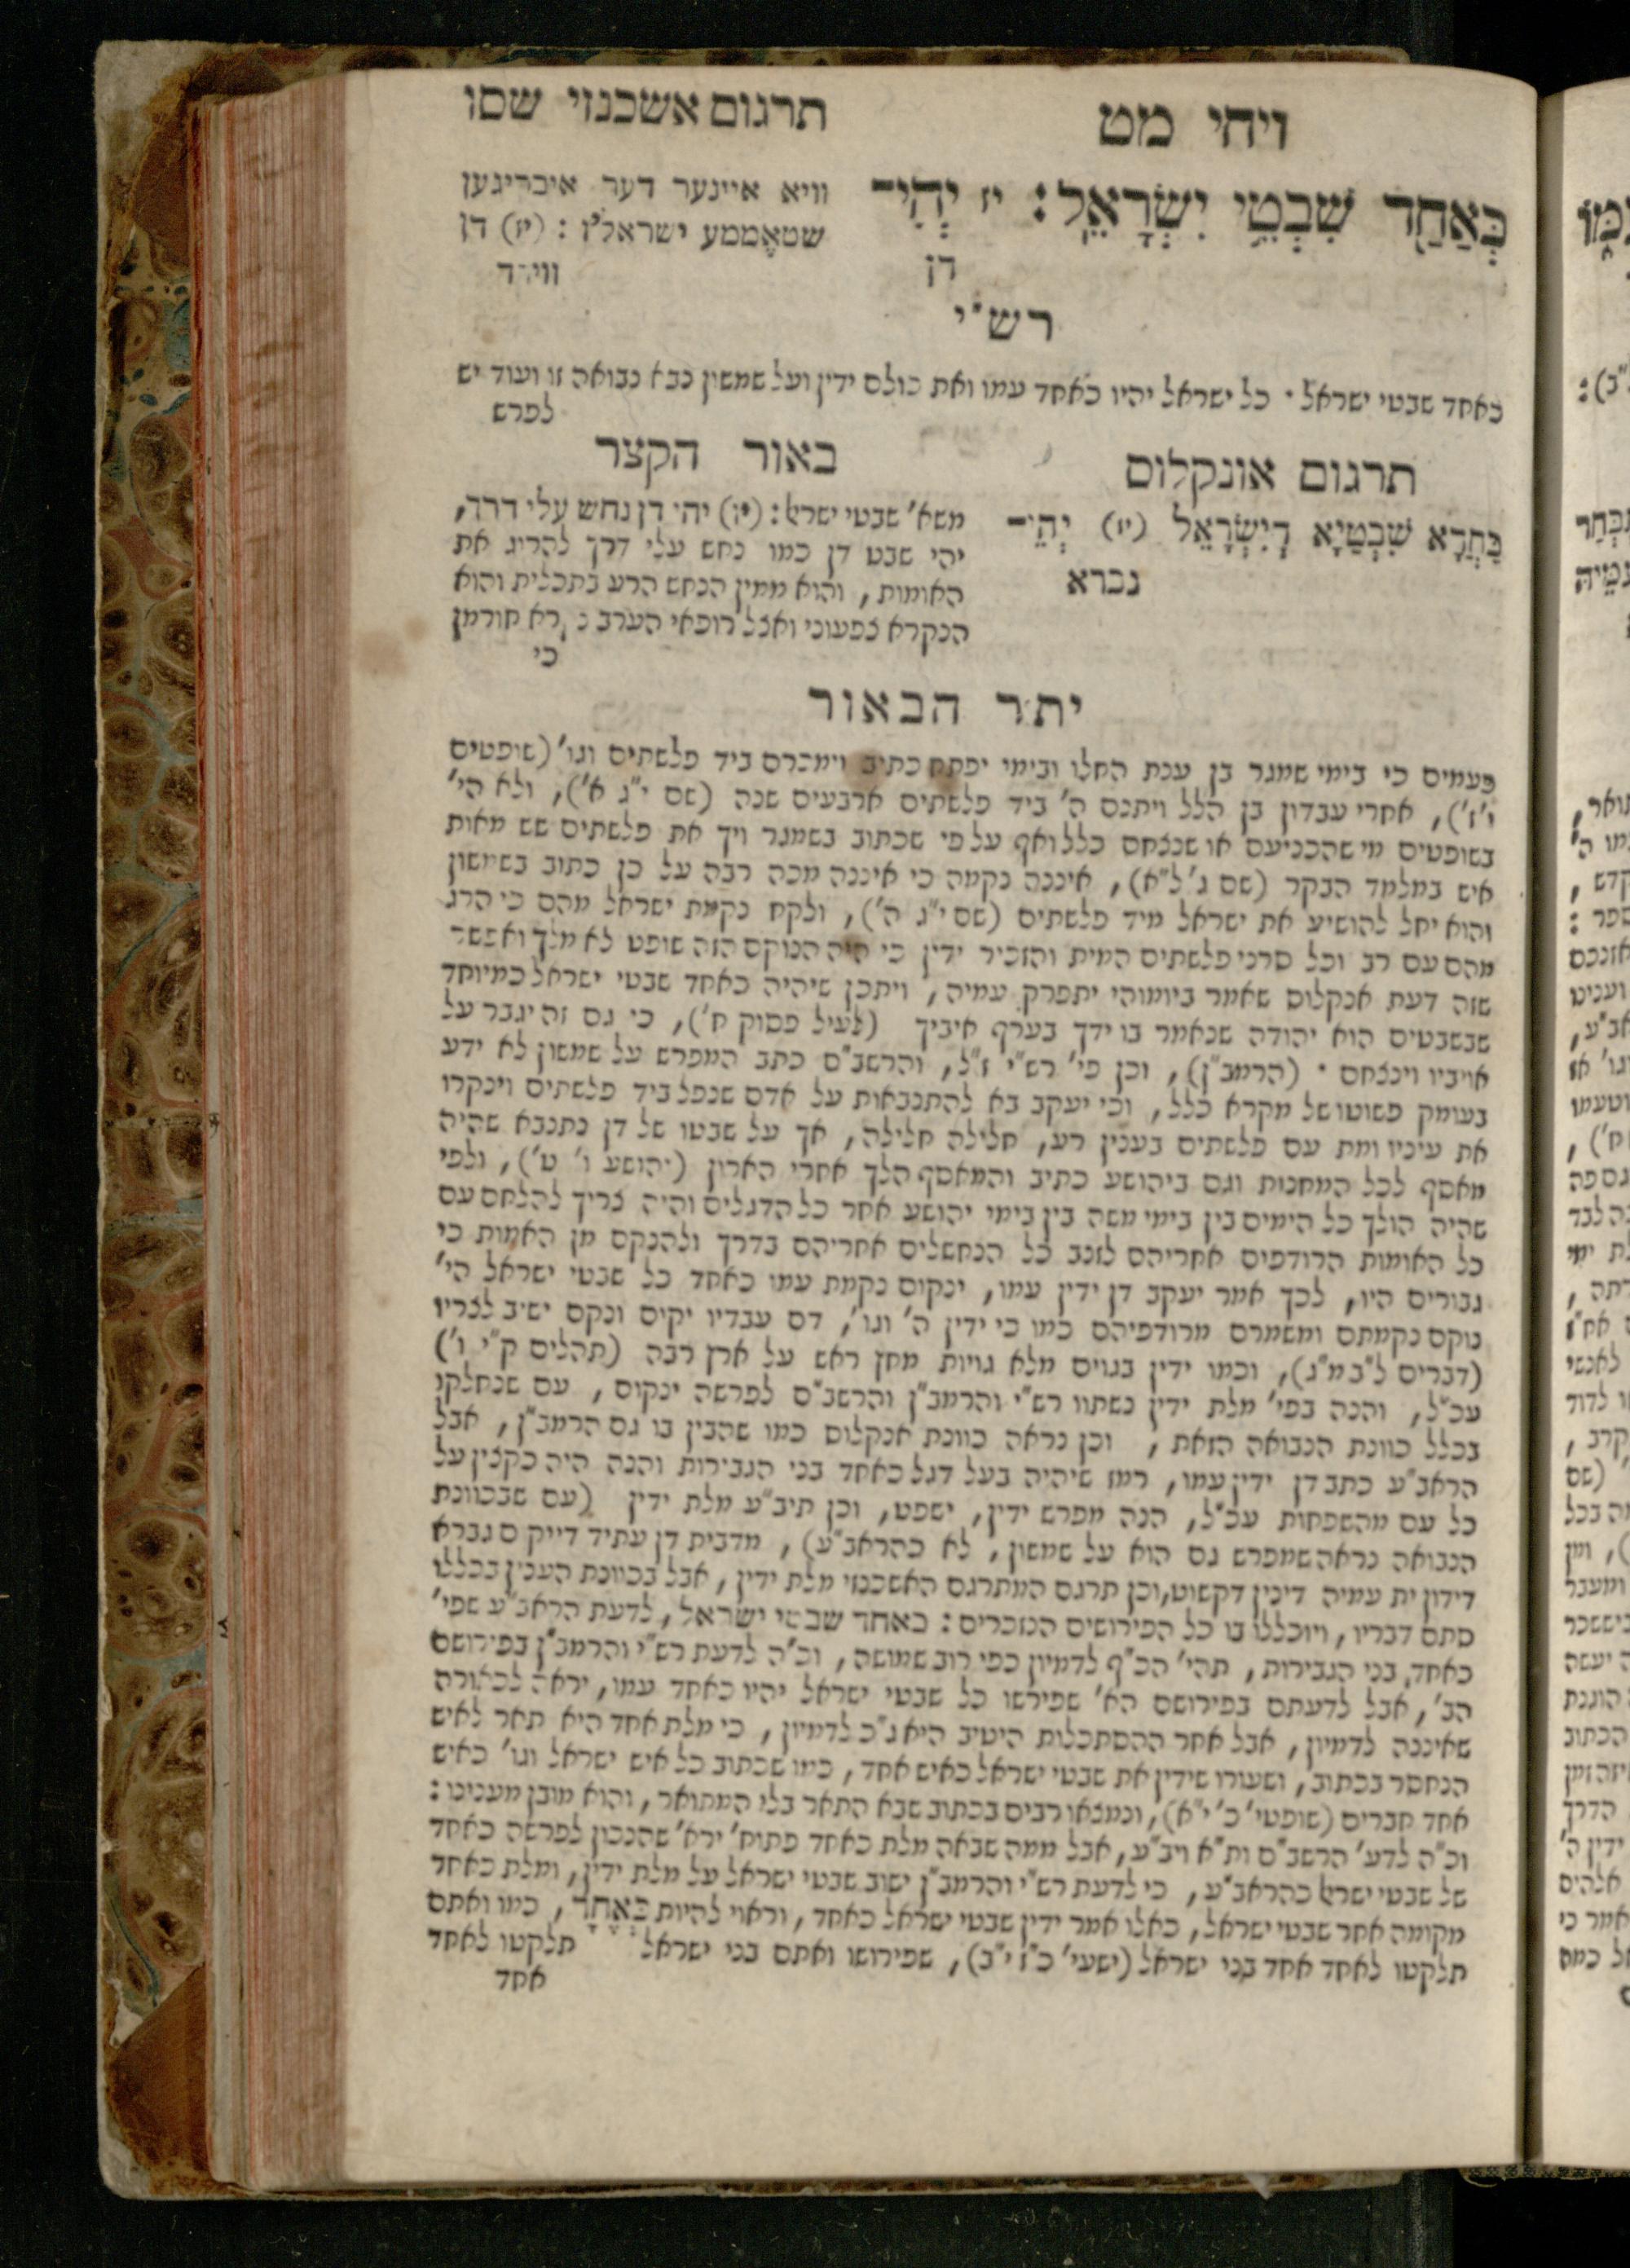 ויחי מט
תרגום אשכנזי שסו
כְּאַחַד שִׁבְטֵי יִשְׂרָאֵל: יז יְהִי־
דן
וויא איינער דער איבריגען
שטאָממע ישראל'ז: (יז) דן
ווירד
רש"י
כאחד שבטי ישראל · כל ישראל יהיו כאחד עמו ואת כולם ידין ועל שמשון נבא נבואה זו ועוד יש
לפרש
תרגום אונקלוס
כַּחֲדָא שִׁבְטַיָא דְיִשְׂרָאֵל (יז) יְהֵי־
גברא
באור הקצר
משא' שבטי ישראל: (יז) יהי דן נחש עלי דרך,
יהי שבט דן כמו נחש עלי דרך להרוג את
האומות, והוא ממין הנחש הרע בתכלית והוא
הנקרא צפעוני ואצל רופאי הערב נקרא חורמן
כי
יתר הבאור
פעמים כי בימי שמגר בן ענת החלו ובימי יפתח כתיב וימכרם ביד פלשתים וגו' (שופטים
י' ז'), אחרי עבדון בן הלל ויתנם ה' ביד פלשתים ארבעים שנה (שם י"ג א'), ולא הי'
בשופטים מי שהכניעם או שנצחם כלל ואף על פי שכתוב בשמגר ויך את פלשתים שש מאות
איש במלמד הבקר (שם ג' ל"א), איננה נקמה כי איננה מכה רבה על כן כתוב בשמשון
והוא יחל להושיע את ישראל מיד פלשתים (שם י"ג ה'), ולקח נקמת ישראל מהם כי הרג
מהם עם רב וכל סרני פלשתים המית והזכיר ידין כי היה הנוקם הזה שופט לא מלך ואפשר
שזה דעת אנקלוס שאמר ביומוהי יתפרק עמיה, ויתכן שיהיה כאחד שבטי ישראל כמיוחד
שבשבטים הוא יהודה שנאמר בו ידך בערף איביך (לעיל פסוק ח'), כי גם זה יגבר על
אויביו וינצחם · (הרמב"ן), וכן פי' רש"י ז"ל, והרשב"ם כתב המפרש על שמשון לא ידע
בעומק פשוטו של מקרא כלל, וכי יעקב בא להתנבאות על אדם שנפל ביד פלשתים וינקרו
את עיניו ומת עם פלשתים בענין רע, חלילה חלילה, אך על שבטו של דן נתנבא שהיה
מאסף לכל המחנות וגם ביהושע כתיב והמאסף הלך אחרי הארון (יהושע ו' ט'), ולפי
שהיה הולך כל הימים בין בימי משה בין בימי יהושע אחר כל הדגלים והיה צריך להלחם עם
כל האומות הרודפים אחריהם לזנב כל הנחשלים אחריהם בדרך ולהנקם מן האמות כי
גבורים היו, לכך אמר יעקב דן ידין עמו, ינקום נקמת עמו כאחד כל שבטי ישראל הי'
נוקם נקמתם ומשמרם מרודפיהם כמו כי ידין ה' וגו', דם עבדיו יקום ונקם ישיב לצריו
(דברים ל"ב מ"ג), וכמו ידין בגוים מלא גויות מחץ ראש על ארץ רבה (תהלים ק"י ו')
עכ"ל, והנה בפי' מלת ידין נשתוו רש"י והרמב"ן והרשב"ם לפרשה ינקום, עם שנחלקו
בכלל כוונת הנבואה הזאת, וכן נראה כוונת אנקלוס כמו שהבין בו גם הרמב"ן, אבל
הראב"ע כתב דן ידין עמו, רמז שיהיה בעל דגל כאחד בני הגבירות והנה היה כקצין על
כל עם מהשפחות עכ"ל, הנה מפרש ידין, ישפט, וכן תיב"ע מלת ידין (עם שבכוונת
הנבואה נראה שמפרש גם הוא על שמשון, לא כהראב"ע), מדבית דן עתיד דייקום גברא
דידון ית עמיה דינין דקשוט, וכן תרגם המתרגם האשכנזי מלת ידין, אבל בכוונת הענין בכללו
סתם דבריו, ויוכללו בו כל הפירושים הנזכרים: כאחד שבטי ישראל, לדעת הראב"ע שפי'
כאחד, בני הגבירות, תהי' הכ"ף לדמיון כפי רוב שמושה, וכ"ה לדעת רש"י והרמב"ן בפירושם
הב', אבל לדעתם בפירושם הא' שפירשו כל שבטי ישראל יהיו כאחד עמו, יראה לכאורה
שאיננה לדמיון, אבל אחר ההסתכלות היטיב היא ג"כ לדמיון, כי מלת אחד היא תאר לאיש
הנחסר בכתוב, ושעורו שידין את שבטי ישראל כאיש אחד, כמו שכתוב כל איש ישראל וגו' כאיש
אחד חברים (שופטי' כ' י"א), ונמצאו רבים בכתוב שבא התאר בלי המתואר, והוא מובן מענינו:
וכ"ה לדע' הרשב"ם ות"א ויב"ע, אבל ממה שבאה מלת כאחד פתוח' ירא' שהנכון לפרשה כאחד
של שבטי ישראל כהראב"ע, כי לדעת רש"י והרמב"ן ישוב שבטי ישראל על מלת ידין, ומלת כאחד
מקומה אחר שבטי ישראל, כאלו אמר ידין שבטי ישראל כאחד, וראוי להיות כְּאֶחָד, כמו ואתם
תלקטו לאחד אחד בני ישראל (ישעי' כ"ז י"ב), שפירושו ואתם בני ישראל תלקטו לאחד
אחד